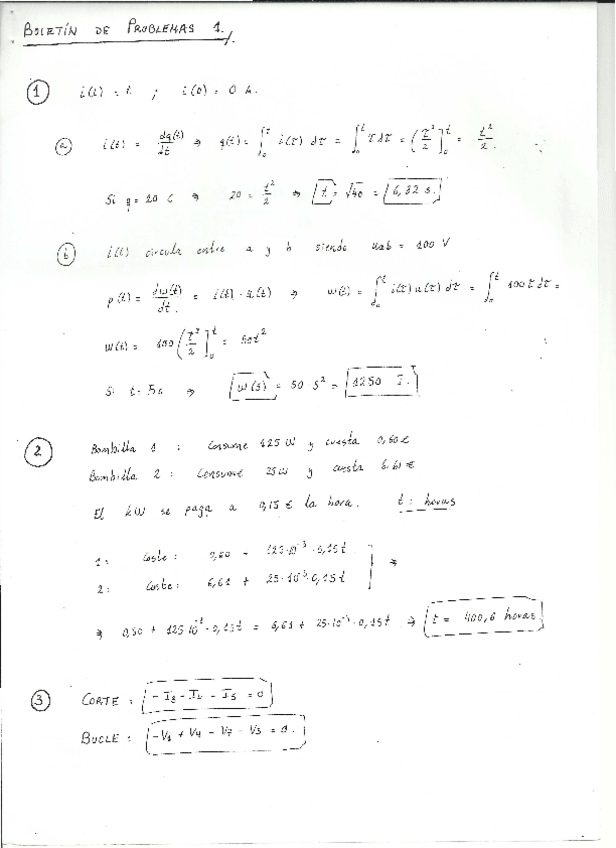 BOLETÍN DE PROBLEMAS 1.
1 i(t) = t ; i(0) = 0 A.
a i(t) = dq(t)/dt ⇒ q(t) = ∫₀ᵗ i(τ) dτ = ∫₀ᵗ τ dτ = (τ²/2]₀ᵗ = t²/2.
Si q = 20 C ⇒ 20 = t²/2 ⇒ t = √40 = 6,32 s.
b i(t) circula entre a y b siendo uab = 100 V
p(t) = dw(t)/dt = i(t) · u(t) ⇒ w(t) = ∫₀ᵗ i(τ) u(τ) dτ = ∫₀ᵗ 100τ dτ =
w(t) = 100 (τ²/2]₀ᵗ = 50t²
Si t = 5s ⇒ w(5) = 50 5² = 1250 J.
2 Bombilla 1 : Consume 125 W y cuesta 0,60 €
Bombilla 2 : Consume 25 W y cuesta 6,61 €
El kW se paga a 0,15 € la hora. t : horas
1: Coste : 0,60 + 125·10⁻³·0,15t
2: Coste : 6,61 + 25·10⁻³·0,15t ⇒
⇒ 0,60 + 125·10⁻³·0,15t = 6,61 + 25·10⁻³·0,15t ⇒ t = 400,6 horas
3 CORTE : -I3 - I4 - I5 = 0
BUCLE : -V1 + V4 - V7 - V3 = 0.